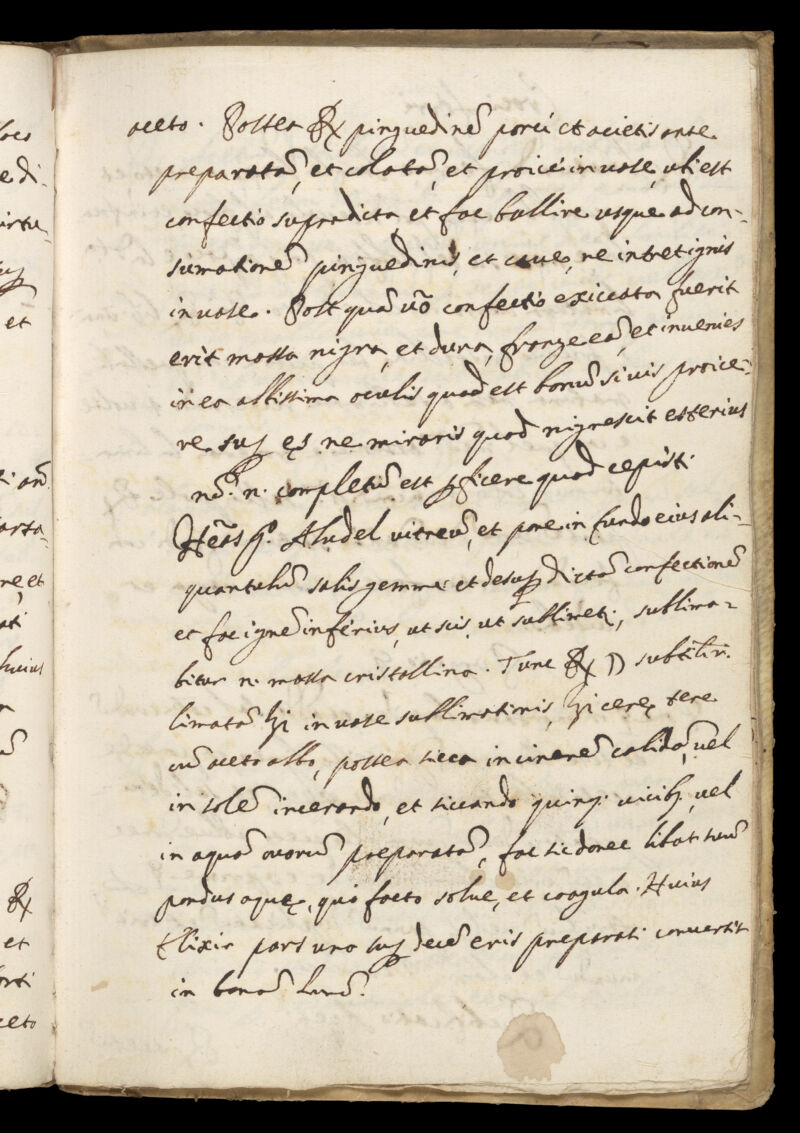 aceto. Postea ℞ pinguedinē porci et arietis ante
preparatā, et colatā, et proice in uase, ubi est
confectio supradicta, et fac bullire usque ad con-
sumationē pinguedinis, et caue, ne intret ignis
in uase. Post quā uō confectio exiccata fuerit
erit massa nigra, et dura, frange eā, et inuenies
in ea altissima oculis quod est bonū si uis proice-
re sup ęs ne miraris quod nigrescit exterius
nō. n. completū est ꝑficere quod cepisti
Aludel uitreū, et pone in fundo eius ali-
quantulū salis gemme et desup dictā confectionē
et fac ignē inferius, ut scis, ut sublimet, sublima-
bitur n. massa cristallina. Tunc ℞
limatā in uase sublimationis, tere
cū aceto albo, postea sicca in cinerē calidā, uel
in solē incerando, et siccando quinq. uicib, uel
in aquā ouorū preparatā, fac sic donec bibat suū
pondus aquę, quo facto solue, et coagula. Huius
Elixir pars una sup decē eris preparati conuertit
in bonā lunā.
ę di-
et
℞
et